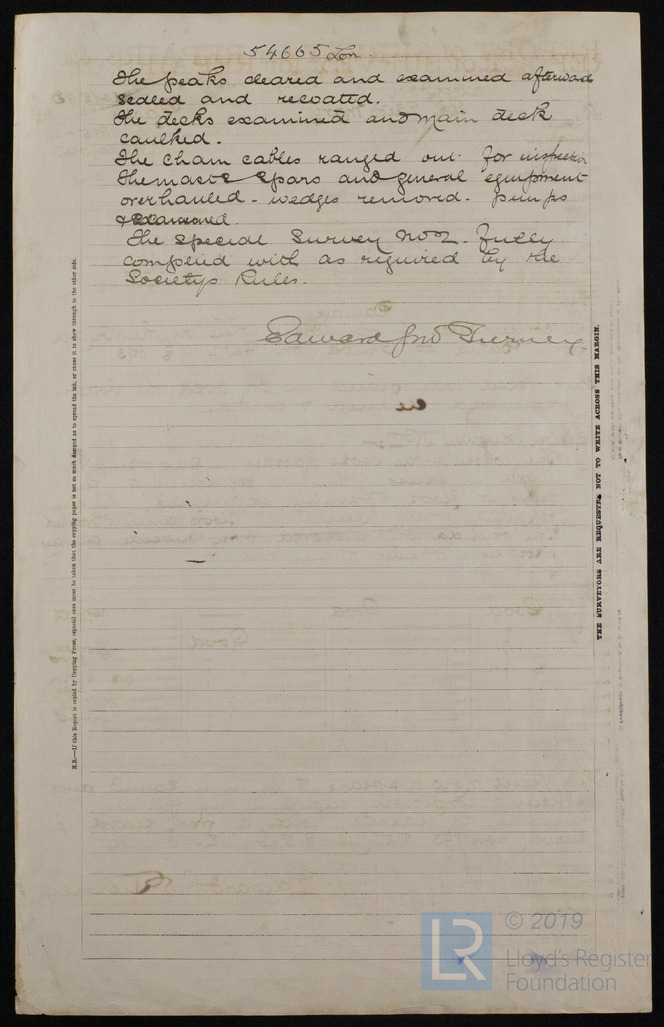 54665 Lon.
The peaks cleared and examined afterward
scaled and recoated.
The decks examined and main deck
caulked.
The Chain cables ranged out for inspection
The masts spars and general equipment
overhauled - wedges removed. pumps
The Special Survey No 2. fully
complied with as required by the
Societys Rules.
Edward Jno Tierney.
N.B.—If this Report is copied by Copying Press, especial care must be taken that the copying paper is not so much damped as to spread the ink, or cause it to show through to the other side.
THE SURVEYORS ARE REQUESTED NOT TO WRITE ACROSS THIS MARGIN.
LR
© 2019
Lloyd's Register
Foundation